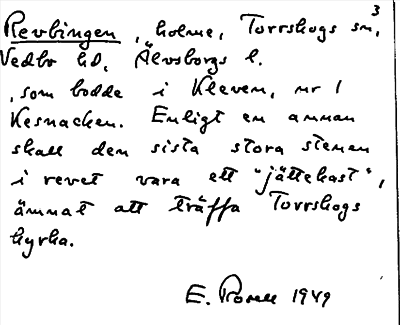 3
Revbingen, holme, Torrskogs sn,
Vedbo hd, Älvsborgs l.
, som bodde i Kleven, nr 1
Kesnacken. Enligt en annan
skall den sista stora stenen
i revet vara ett "jättekast",
ämnat att träffa Torrskogs
kyrka.
E. 1949